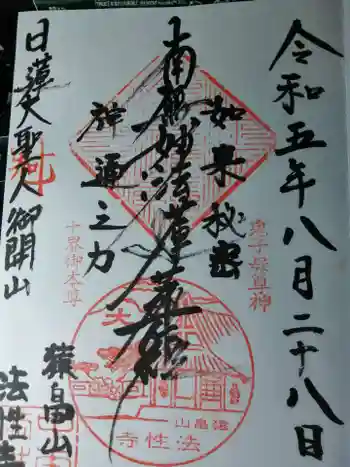 令和五年八月二十八日
鬼子母尊神
如来秘密
南無妙法蓮華経
神通之力
十界御本尊
日蓮大聖人御開山
猿畠山
法性寺
猿畠山
法性寺
大